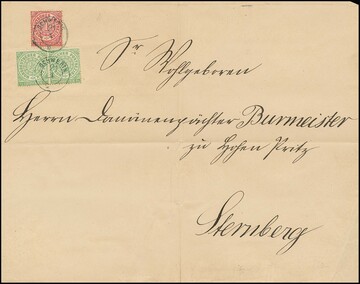 Sr
Wohlgeboren
Herren Domänenpächter Burmeister
zu Hohen Pritz
Sternberg